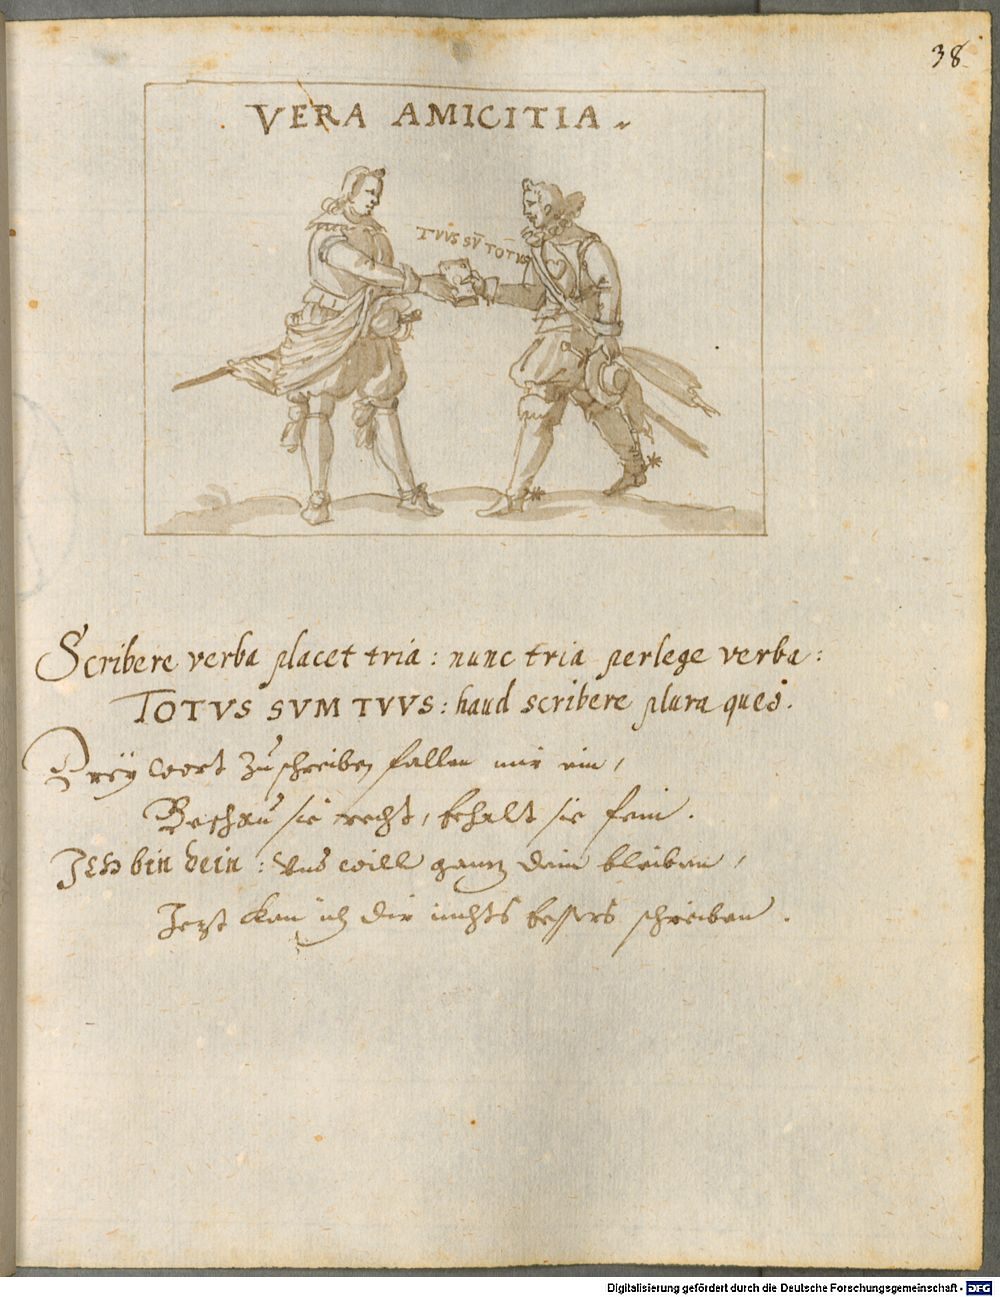 38
VERA AMICITIA
TVVS SV̄ TOTVS
Scribere verba placet tria : nunc tria perlege verba :
TOTVS SVM TVVS : haud scribere plura queo.
Dreÿ wort zuschreiben fallen mir ein,
Beschau sie recht, behalt sie fein.
Ich bin dein : vnd will gantz dein bleiben,
Jetzt kan ich dir nichts bessers schreiben.
Digitalisierung gefördert durch die Deutsche Forschungsgemeinschaft - DFG